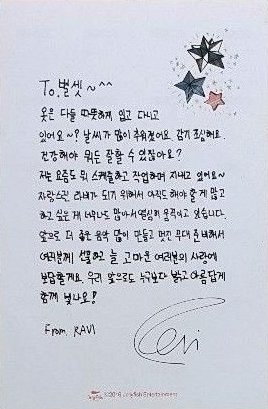 To. 별셋~^^
옷은 다들 따뜻하게 입고 다니고
있어요~? 날씨가 많이 추워졌어요. 감기 조심해요.
건강해야 뭐든 잘할 수 있잖아요?
저는 요즘도 뭐 스케줄하고 작업하며 지내고 있어요~
자랑스런 라비가 되기 위해서 아직도 해야 할 게 많고
하고 싶은 게 너무나도 많아서 열심히 움직이고 있습니다.
앞으로 더 좋은 음악 많이 만들고 멋진 무대 준비해서
여러분께 선물하고 늘 고마운 여러분의 사랑에
보답할게요. 우리 앞으로도 누구보다 밝고 아름답게
함께 빛나요!
From. RAVI
Ravi
©2016 Jellyfish Entertainment